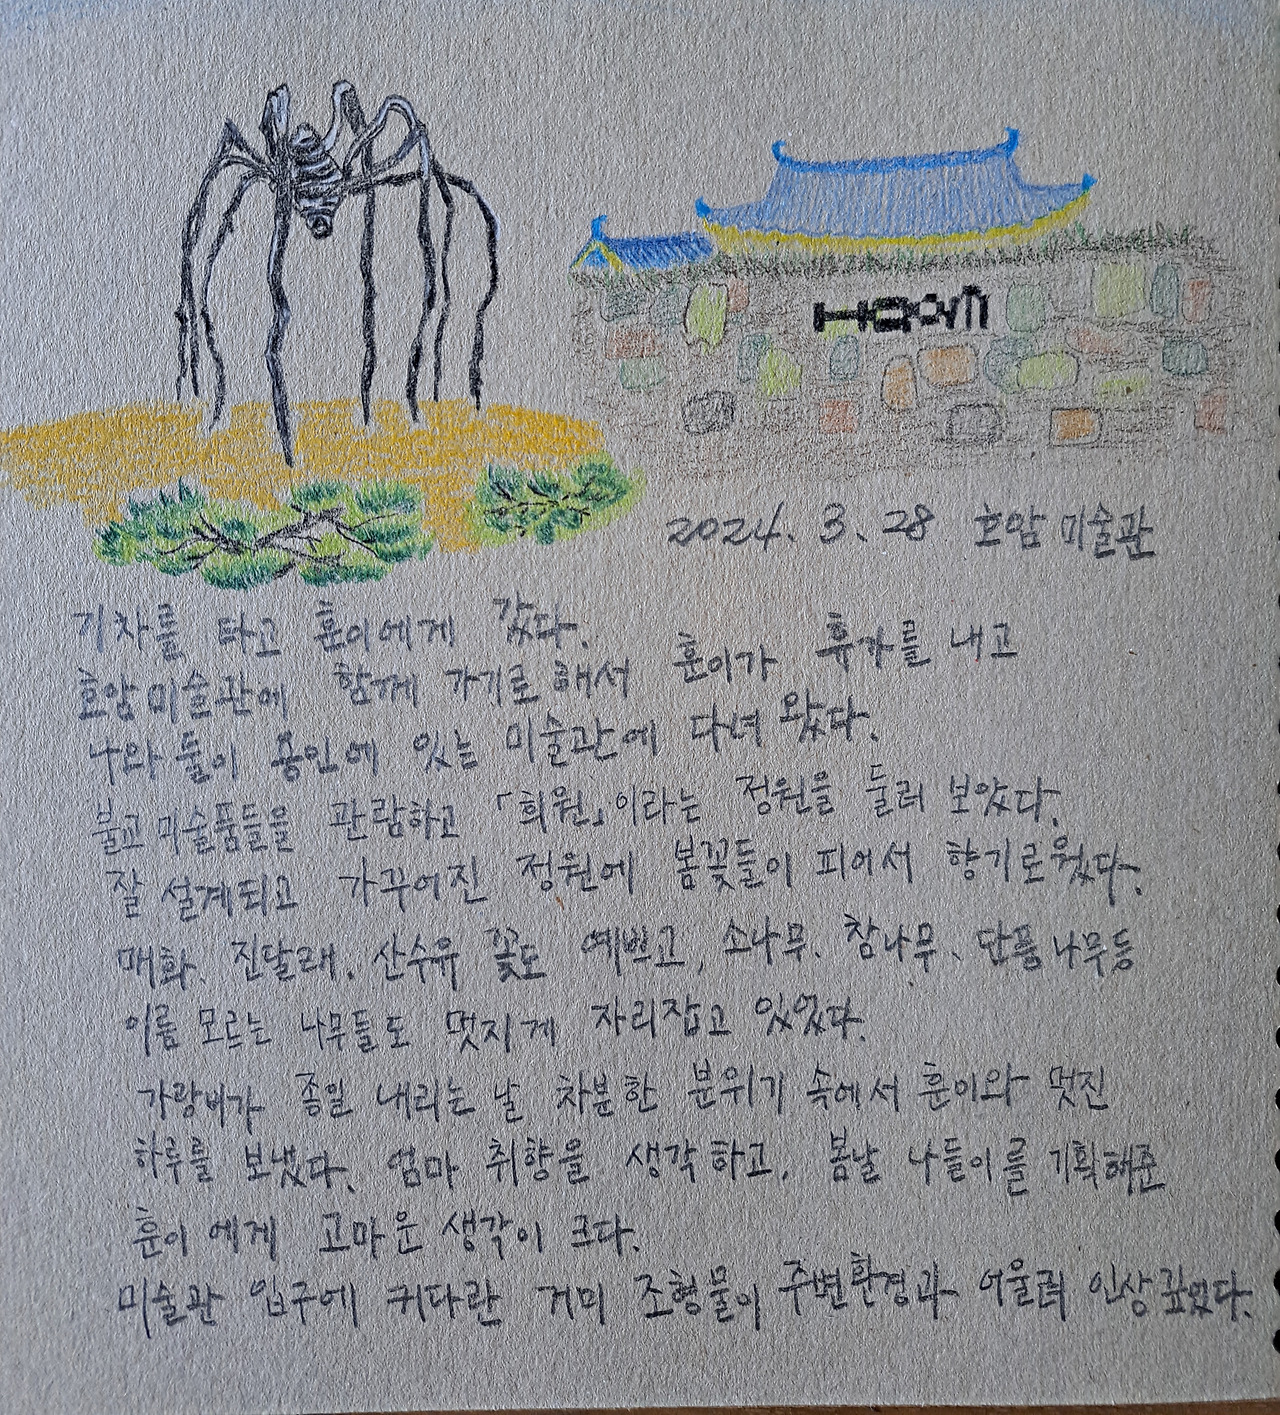 HOAM
2024. 3. 28 호암미술관
기차를 타고 훈이에게 갔다.
호암미술관에 함께 가기로 해서 훈이가 휴가를 내고
나와 둘이 용인에 있는 미술관에 다녀 왔다.
불교 미술품들을 관람하고 「희원」이라는 정원을 둘러 보았다.
잘 설계되고 가꾸어진 정원에 봄꽃들이 피어서 향기로웠다.
매화, 진달래, 산수유 꽃도 예쁘고, 소나무, 참나무, 단풍나무등
이름 모르는 나무들도 멋지게 자리잡고 있었다.
가랑비가 종일 내리는 날 차분한 분위기 속에서 훈이와 멋진
하루를 보냈다. 엄마 취향을 생각하고, 봄날 나들이를 기획해준
훈이에게 고마운 생각이 크다.
미술관 입구에 커다란 거미 조형물이 주변환경과 어울려 인상깊었다.